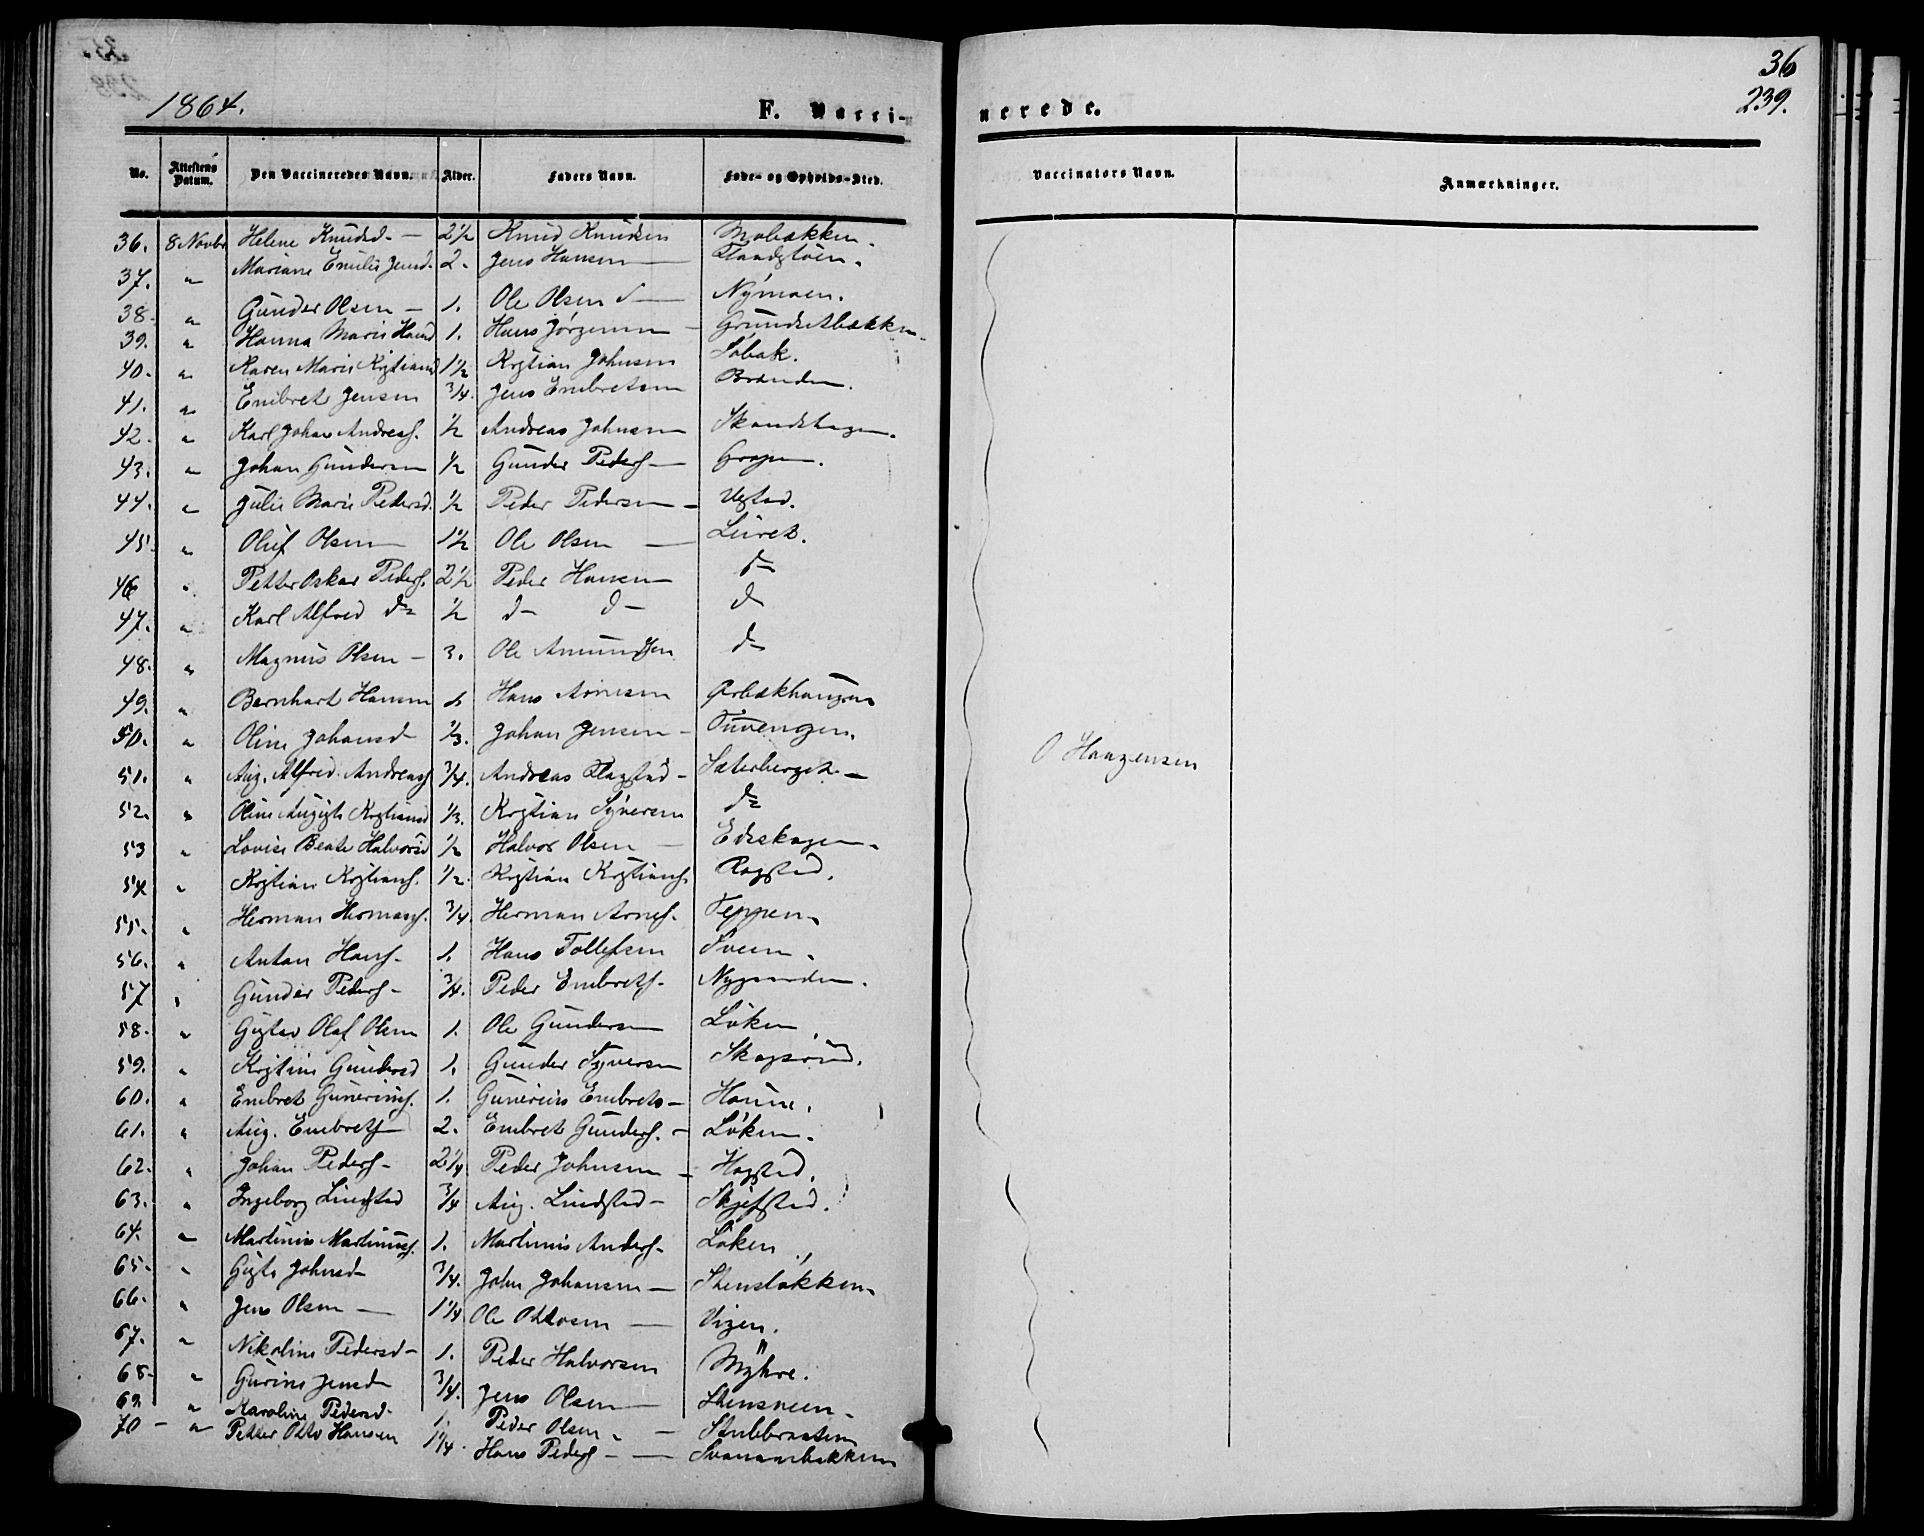 36
239.
1864.
F. Vaccinerede.
No. Attestens Datum. Den Vaccineredes Navn. Alder. Faders Navn. Føde- og Opholds-Sted. Vaccinators Navn. Anmærkninger.
36. 8 Novbr Helene Knudsd. — 2½ Knud Knudsen Mobækken.
37. " Mariane Emilie Jensd. 2. Jens Hansen —
38. " Gunder Olsen — 1. Ole Olsen — Nymoen.
39. " Hanna Marie Hansd 1. Hans Jørgensen — Grundsetbækken
40. " Karen Marie Kristiansd 1½ Kristian Johnsen Søbak.
41. " Embret Jensen ¾. Jens Embretsen Brænden.
42. " Karl Johan Andreass. ½ Andreas Johnsen Skandshagen.
43. " Johan Gundersen ½ Gunder Peders — Grapen.
44. " Julie Marie Pedersd. ½ Peder Pedersen — Ugstad.
45. " Oluf Olsen 1½ Ole Olsen — Leiret.
46 " Petter Oskar Peders. 2½ Peder Hansen — do
47. " Karl Alfred do ½ do do do
48. " Magnus Olsen — 3. Ole Amundsen do
49. " Bernhart Hansen Hans Arnesen Ørbækhaugen
50. " Oline Johansd ⅓. Johan Jensen — Tuvengen.
51. " Aug. Alfred Andreass ¾. Andreas Flagstad — Sæterberget —
52. " Oline Augusta Kristiansd ⅓. Kristian Syversen do
53 " Lovise Beate Halvorsd ½ Halvor Olsen — Edsskogen.
54 " Kristian Kristians. ½. Kristian Kristians. Rogstad.
55. " Herman Hermans. ¾ Herman Arnes. Teppen.
56. " Anton Hans. 1. Hans Tollefsen Sveen.
57 " Gunder Peders — ¾. Peder Embrets. Nygaarden.
58. " Gustav Olaf Olsen 1. Ole Gundersen Løken.
59. " Kristine Gundersd 1. Gunder Syversen
60. " Embret Guneriuss. 1. Gunerius Embrets — Hanne.
61. " Aug. Embrets 2. Embret Gunders. — Løken.
62. " Johan Peders — 2¼ Peder Johnsen — Hagstad.
63. " Ingeborg Lindstad ¾ Aug. Lindstad — Skjefstad.
64. " Martinius Martiniuss. 1. Martinius Anders. Løken.
65. " Gusta Johnsd ¾. John Johansen — Stensløkken.
66. " Jens Olsen — 1¼ Ole Ottosen — Vizen.
67. " Nikoline Pedersd — 1. Peder Halvorsen Myhre.
68. " Gurine Jensd ¾. Jens Olsen — Stensveen.
69 " Karoline Pedersd. 1. Peder Olsen — Stubbraaten
70 — " Petter Otto Hansen 1¼. Hans Peders — Svenaarbækken
O Haagensen